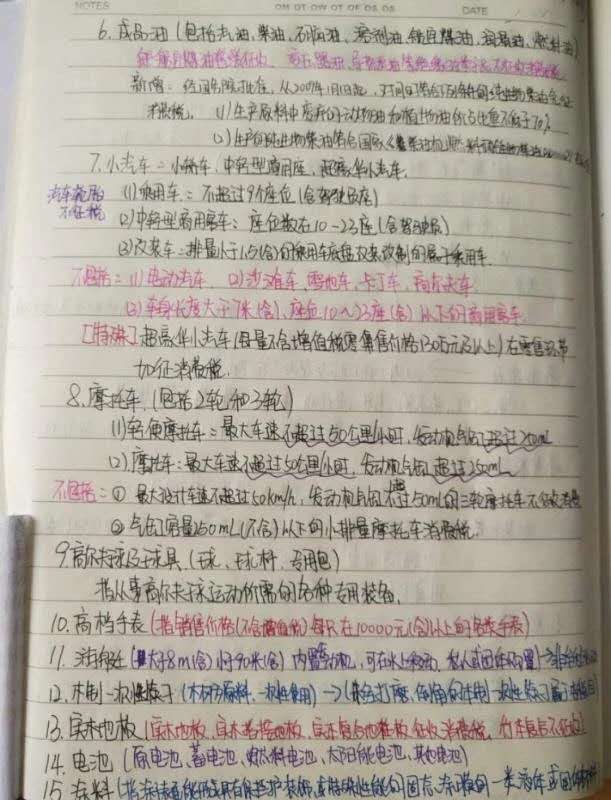 NOTES
MO TU WE TH FR SA SU
DATE
6. 成品油（包括汽油，柴油，石脑油，溶剂油，航空煤油，润滑油，燃料油）
航空煤油暂缓征收
新增：经国务院批准，从2009年1月1日起，对同时符合下列条件的纯生物柴油免征
消费税，(1)生产原料中废弃的动物油和植物油的占比重不低于70%
(2)生产的纯生物柴油符合国家《柴油机燃料调合生物柴油
7. 小汽车：小轿车，中轻型商用客，超豪华小汽车.
汽车轮胎
不征税
(1)乘用车：不超过9个座位（含驾驶员座）
(2)中轻型商用客车：座位数在10-23座（含驾驶员）
(3)改装车：排量小于1.5(含)的乘用车底盘改装改制的属于乘用车.
不包括：(1)电动汽车，(2)沙滩车，雪地车，卡丁车，高尔夫车.
(3)车身长度大于7米(含)，座位10~23座(含)以下的商用客车.
[特殊]超豪华小汽车(每辆不含增值税零售价格130万元及以上)在零售环节
加征消费税.
8. 摩托车.（包括2轮和3轮）
(1)轻便摩托车：最大车速不超过50公里/小时，发动机气缸超过250mL
(2).摩托车：最大车速不超过50公里/小时，发动机气缸超过250mL
不包括：① 最大设计车速不超过50km/h，发动机气缸不超过50mL的三轮摩托车不征收消费
② 气缸容量250mL(不含)以下的小排量摩托车消费税.
9. 高尔夫球及球具（球，球杆，专用包）
指从事高尔夫球运动所需的各种专用装备.
10. 高档手表(指销售价格(不含增值税)每只在10000元(含)以上的各类手表)
11. 游艇(大于8m(含)小于90米(含)内置发动机，可在水上移动，
12. 木制一次性筷子(木材为原料，一次性使用)→(未经打磨，倒角的木制一次性筷子属于
13. 实木地板(实木地板，实木指接地板，实木复合地板征收消费税，竹木复合不征收)
14. 电池(原电池，蓄电池，燃料电池，太阳能电池，其他电池)
15 涂料(指涂于物体表面能形成具有保护，装饰或特殊性能的固态涂膜的一类液体或固体材料